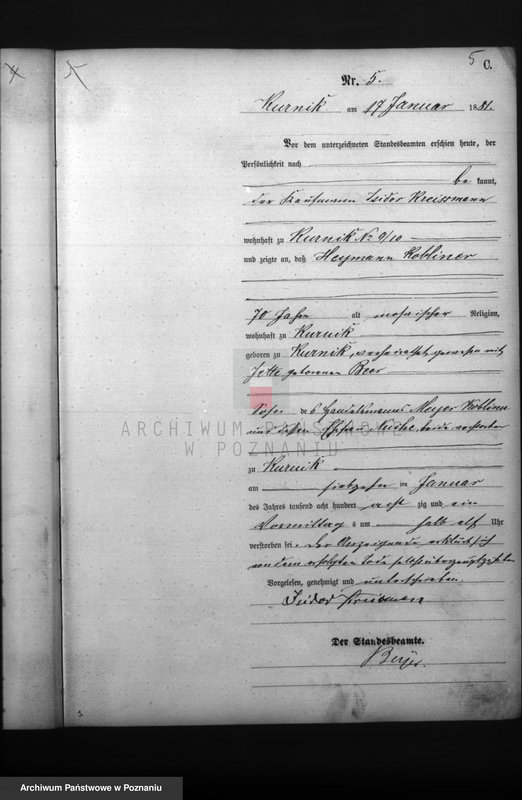 4
5 C.
Nr. 5.
Kurnik am 17 Januar 1881.
Vor dem unterzeichneten Standesbeamten erschien heute, der
Persönlichkeit nach
be kannt,
der Kaufmann Isidor Kreissmann
wohnhaft zu Kurnik No 9/10
und zeigte an, daß Heymann Kobliner
70 Jahre alt mosaischer Religion,
wohnhaft zu Kurnik
geboren zu Kurnik, verheirathet gewesen mit
Jette geborenen Beer
Sohn des Handelsmanns Meyer Kobliner
und dessen Ehefrau beide verstorben
zu Kurnik
am siebzehn ten Januar
des Jahres tausend acht hundert acht zig und ein
Vormittags um halb elf Uhr
verstorben sei, der Anzeigende erklärt sich
von dem erfolgten Tode
Vorgelesen, genehmigt und unterschrieben.
Isidor
Der Standesbeamte.
ARCHIWUM PAŃSTWOWE
W POZNANIU
Archiwum Państwowe w Poznaniu